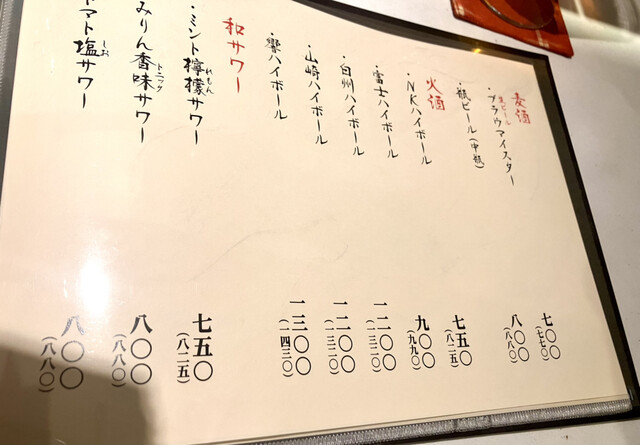 麦酒
生ビール
・ブラウマイスター 七〇〇(七七〇)
・瓶ビール(中瓶) 八〇〇(八八〇)
火酒
・NKハイボール 七五〇(八二五)
・富士ハイボール 九〇〇(九九〇)
・白州ハイボール 一二〇〇(一三二〇)
・山崎ハイボール 一二〇〇(一三二〇)
・響ハイボール 一三〇〇(一四三〇)
和サワー
れもん
・ミント檸檬サワー 七五〇(八二五)
トニック
みりん香味サワー 八〇〇(八八〇)
しお
マト塩サワー 八〇〇(八八〇)